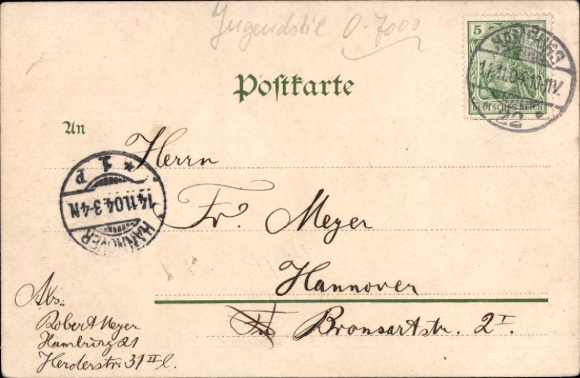 Jugendstil 0-7000
5
DEUTSCHES REICH
HAMBURG
14.11.04.
22
Postkarte
An
Herrn
Fr. Meyer
Hannover
Bronsartstr. 2 I
* 1. P
14.11.04.3-4N
HANNOVER
Abs.:
Robert Meyer
Hamburg 21
Herderstr. 31 II l.